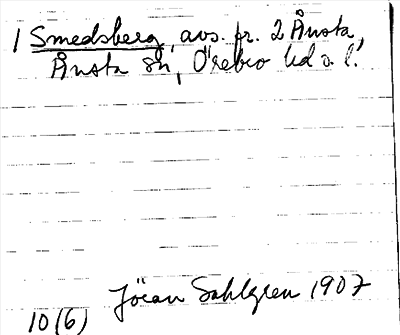 1 Smedsberg, avs. fr. 2 Ånsta,
Ånsta sn, Örebro hd o. l.
Jöran Sahlgren 1907
10(6)